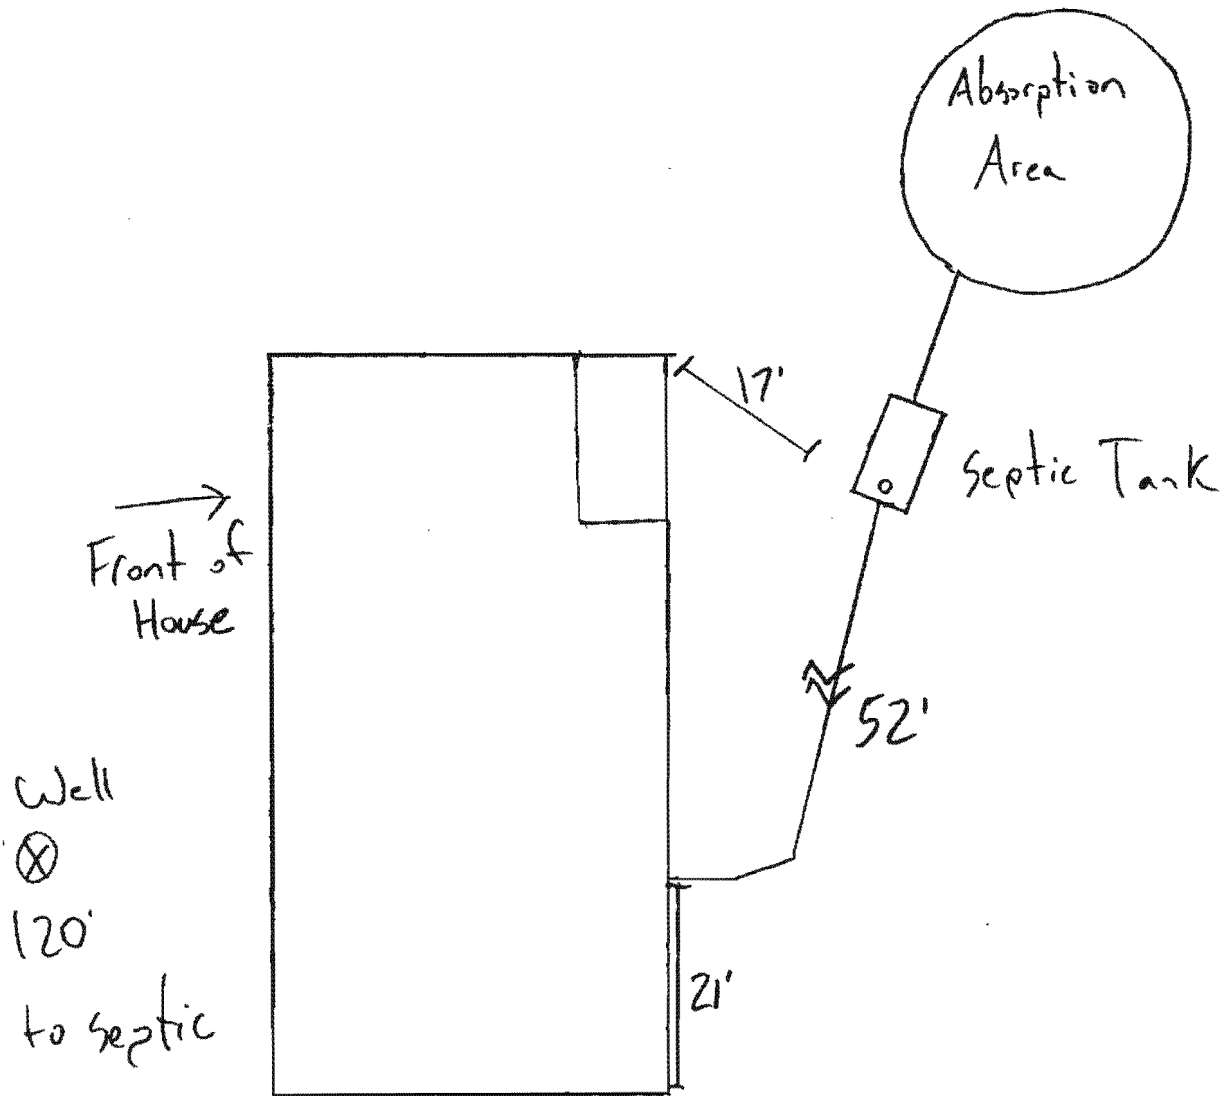 Absorption
Area
17'
Septic Tank
Front of
House
52'
Well
120'
to septic
21'